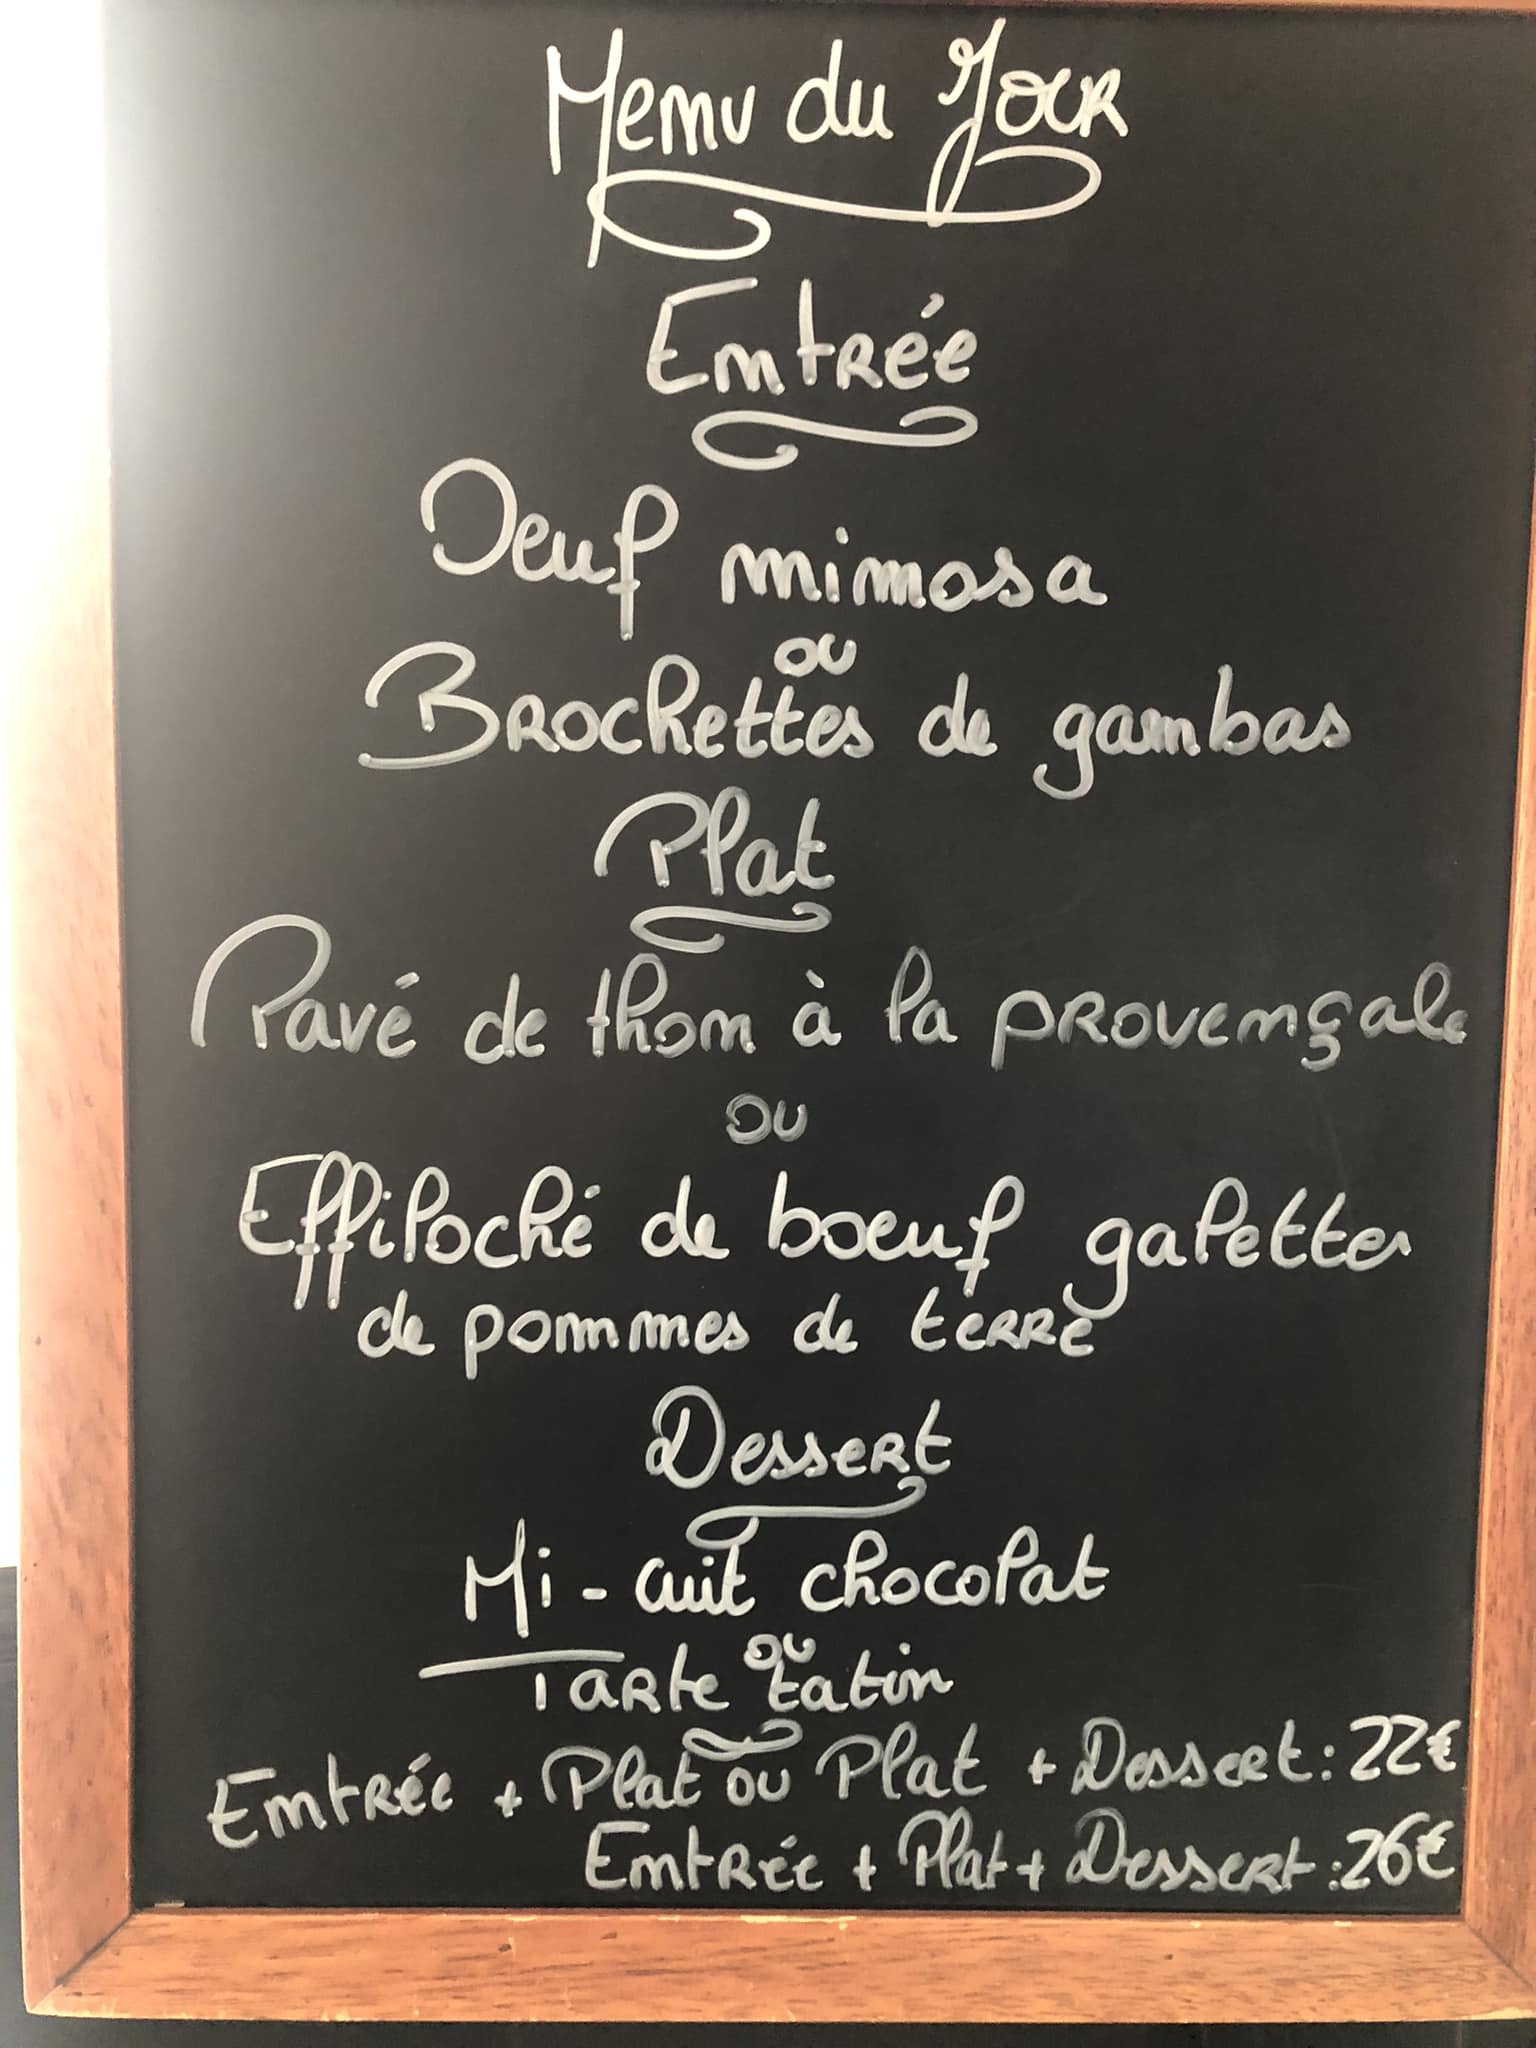 Menu du Jour
Entrée
Oeuf mimosa
ou
Brochettes de gambas
Plat
Pavé de thon à la provençale
ou
Effiloché de boeuf galettes
de pommes de terre
Dessert
Mi-cuit chocolat
ou
Tarte tatin
Entrée + Plat ou Plat + Dessert : 22€
Entrée + Plat + Dessert : 26€